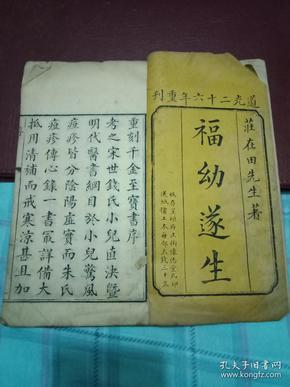 道光二十六年重刊
莊在田先生著
福幼遂生
重刻千金至寶書序
考之宋世錢氏小兒直決暨
明代醫書綱目於小兒驚風
痘疹皆分陰陽虛實而朱氏
痘疹傳心錄一書嚴詳備大
抵用清補而戒寒涼甚且加
孔夫子旧书网